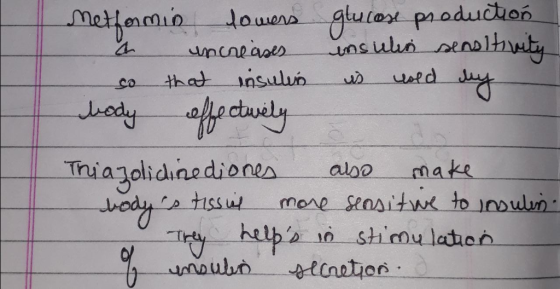 Metformin lowers glucose production
& increases insulin sensitivity
so that insulin is used by
body effectively
Thiazolidinediones also make
body's tissue more sensitive to insulin.
They help's in stimulation
of insulin secretion.